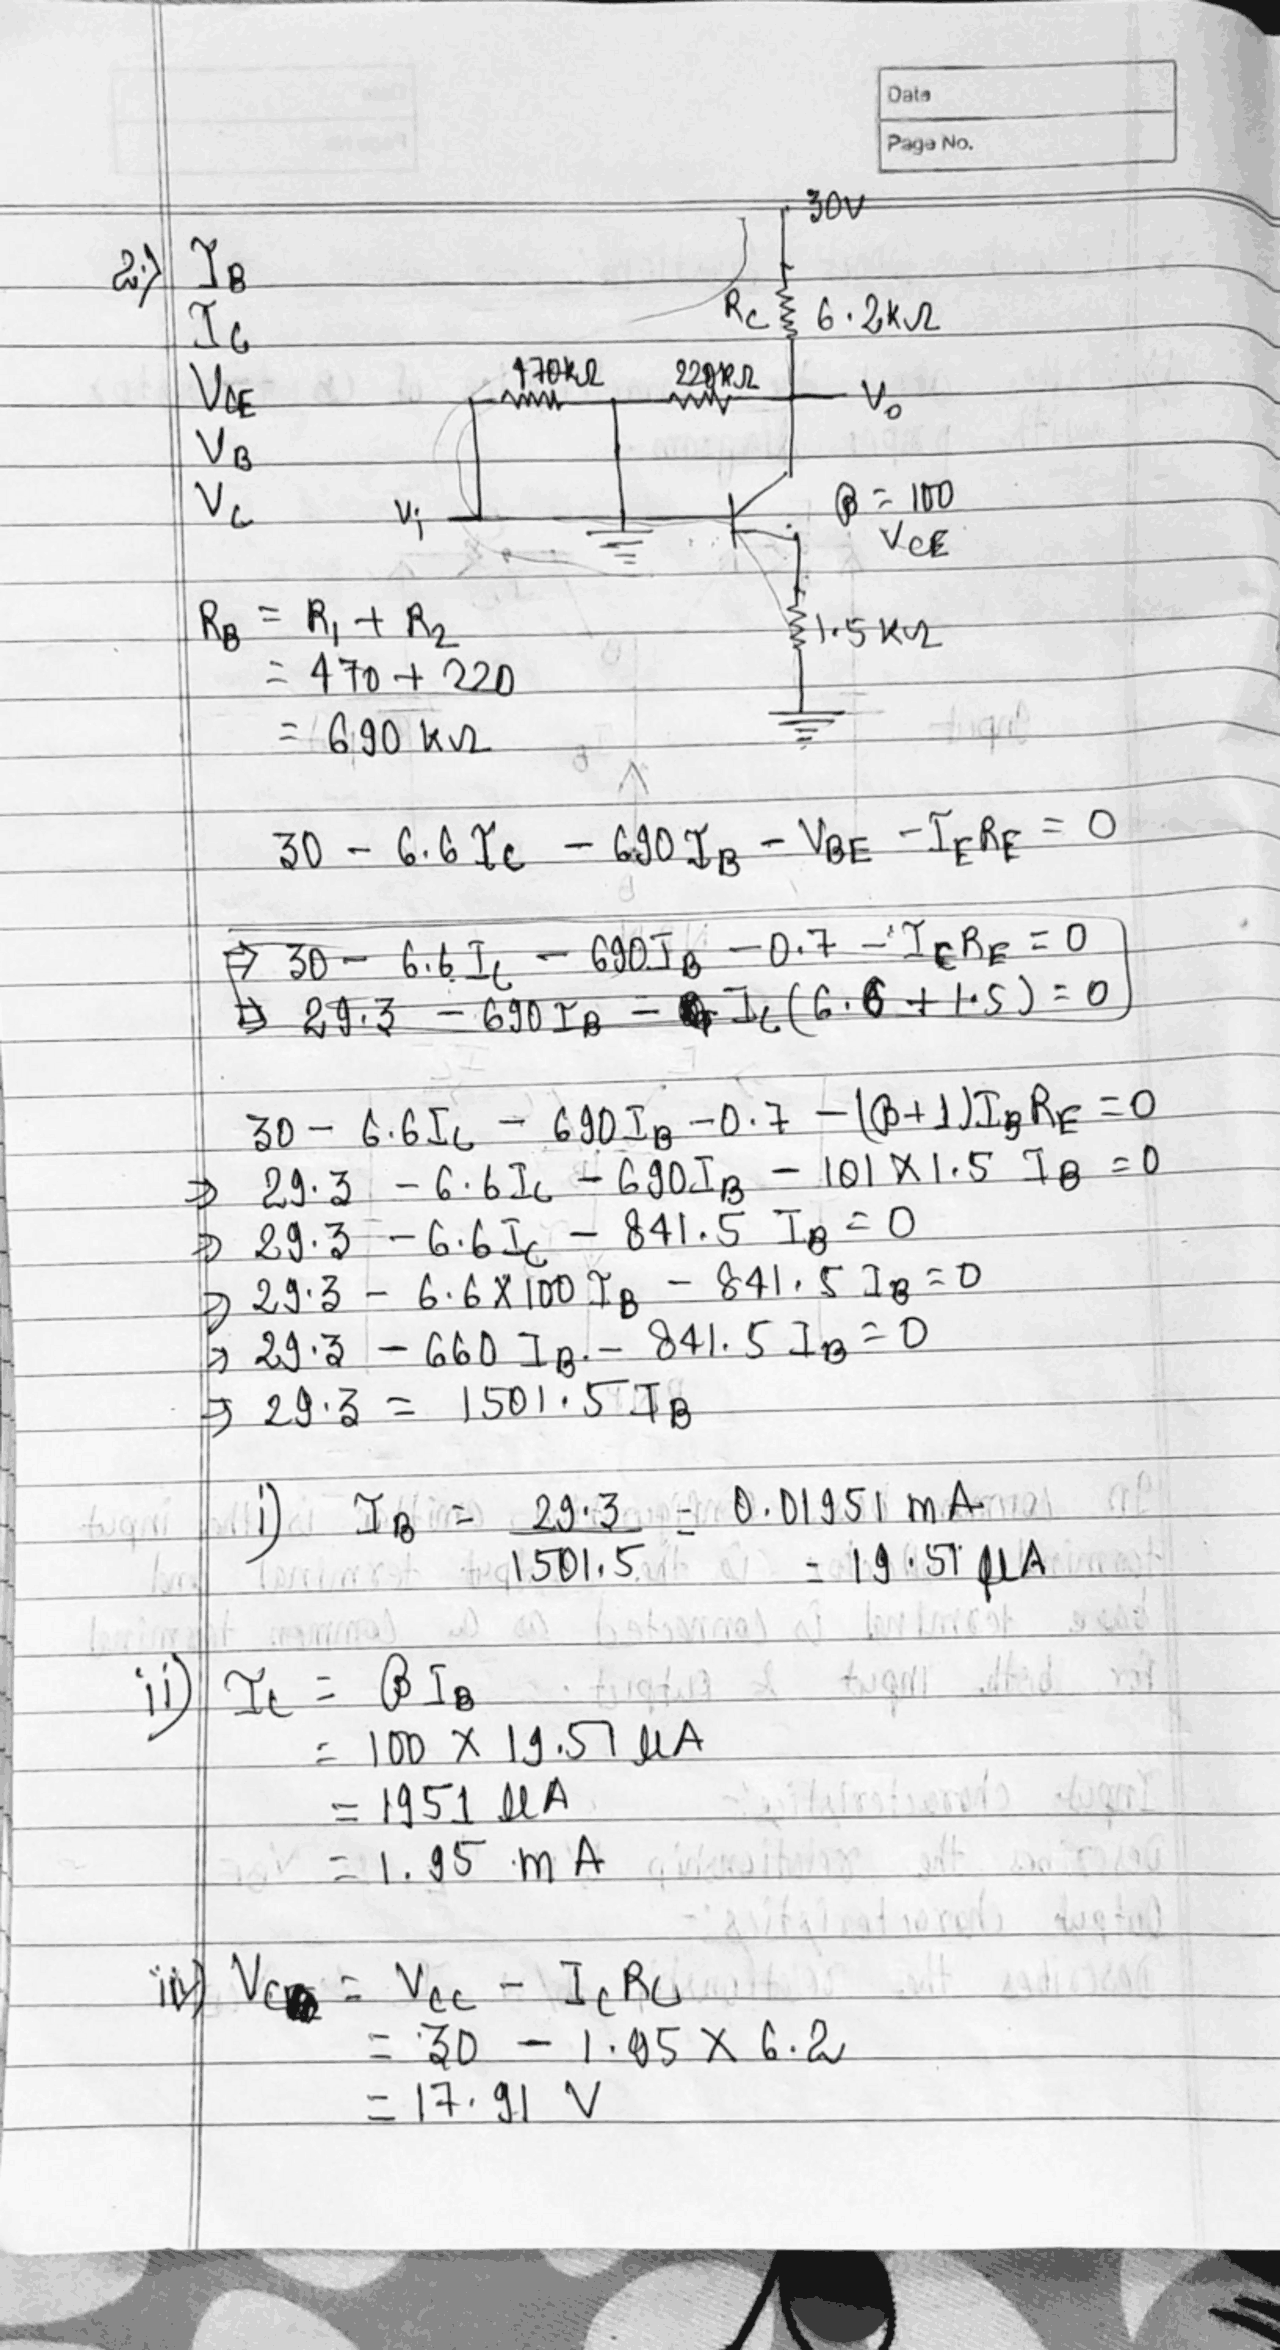 Data
Page No.
30V
2i) I_B
I_C
R_C 6.2kΩ
470kΩ 220kΩ
V_CE
V_o
V_B
V_C
V_i
β = 100
V_CE
R_B = R_1 + R_2
1.5 kΩ
= 470 + 220
= 690 kΩ
30 - 6.6 I_C - 690 I_B - V_BE - I_E R_E = 0
⇒ 30 - 6.6 I_C - 690 I_B - 0.7 - I_C R_E = 0
⇒ 29.3 - 690 I_B - I_C (6.6 + 1.5) = 0
30 - 6.6 I_C - 690 I_B - 0.7 - (β+1) I_B R_E = 0
⇒ 29.3 - 6.6 I_C - 690 I_B - 101 X 1.5 I_B = 0
⇒ 29.3 - 6.6 I_C - 841.5 I_B = 0
⇒ 29.3 - 6.6 X 100 I_B - 841.5 I_B = 0
⇒ 29.3 - 660 I_B - 841.5 I_B = 0
⇒ 29.3 = 1501.5 I_B
i) I_B = 29.3 / 1501.5 = 0.01951 mA
= 19.51 μA
ii) I_C = β I_B
= 100 X 19.51 μA
= 1951 μA
= 1.95 mA
iv) V_C = V_CC - I_C R_C
= 30 - 1.95 X 6.2
= 17.91 V